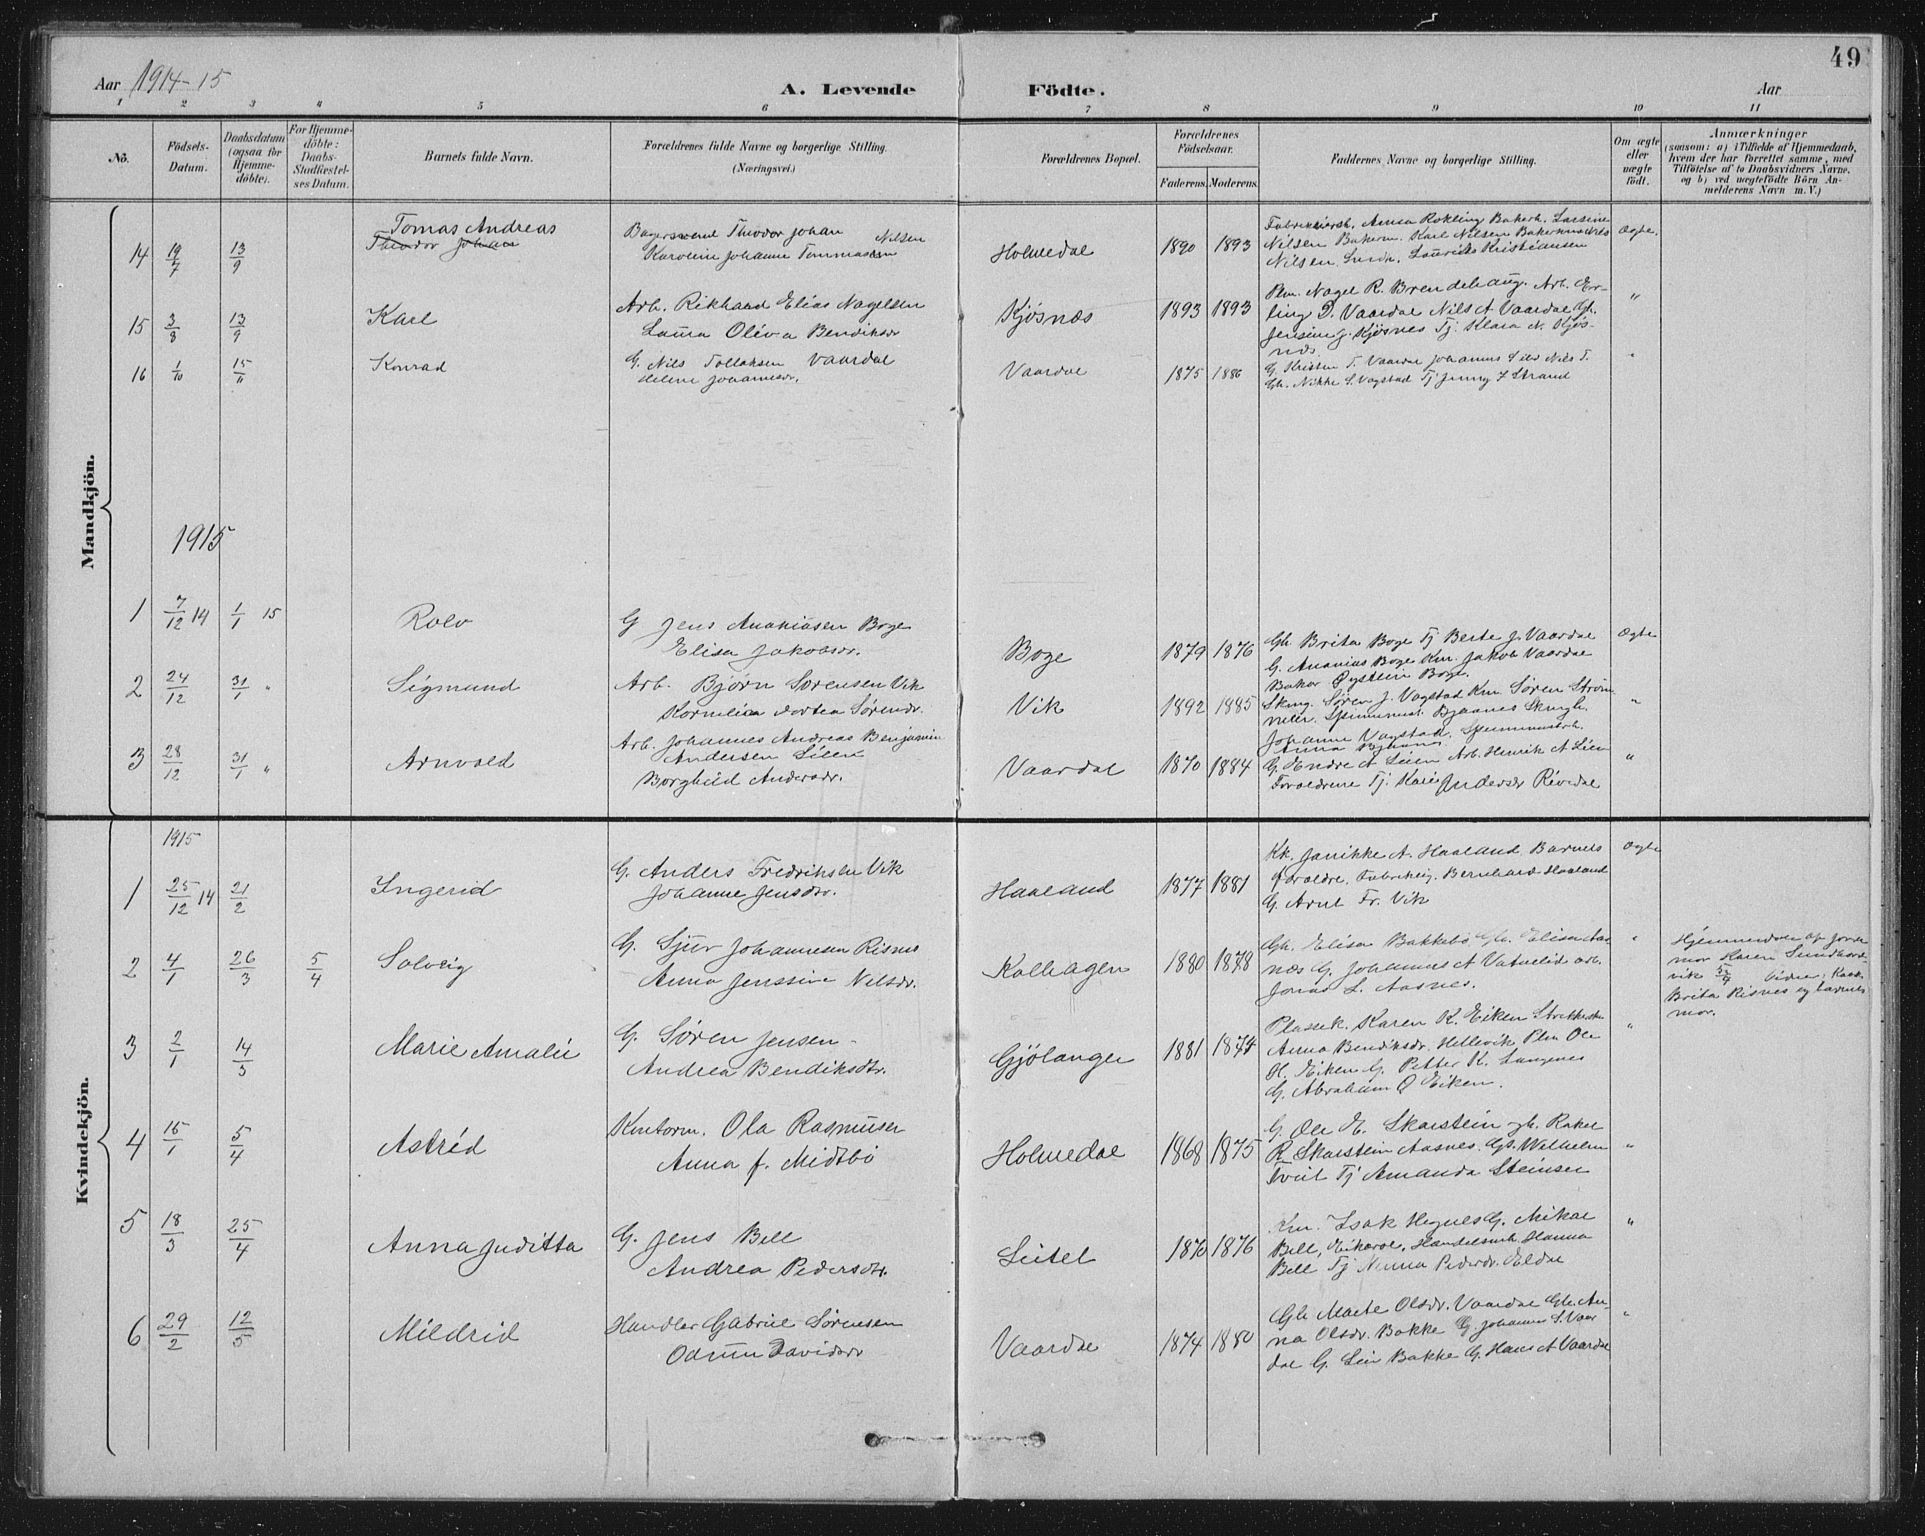 49
Aar 1914-15
A. Levende Födte.
Aar
1 2 3 4 5 6 7 8 9 10 11
No.
Födsels-Datum.
Daabsdatum (ogsaa for Hjemme-döbte).
For Hjemme-döbte: Daabs-Stadfestel-ses Datum.
Barnets fulde Navn.
Forældrenes fulde Navne og borgerlige Stilling.
(Næringsvei.)
Forældrenes Bopæl.
Forældrenes Födselsaar.
Faderens. Moderens.
Faddernes Navne og borgerlige Stilling.
Om ægte eller uægte födt.
Anmærkninger
(saasom: a) i Tilfælde af Hjemmedaab,
hvem der har forrettet samme, med
Tilföielse af to Daabsvidners Navne.
og b) ved uægtefödte Börn An-
melderens Navn m. V.)
Mandkjön.
14 19/7 13/9 Tomas Andreas
Theodor Johan
Bagersvend Theodor Johan Nilsen
Karoline Johanne Tommasen
Holmedal 1890 1893
Anna Rokling Bakerh. Larsine
Nilsen Bakerm. Karl Nilsen
Nilsen Laurids Kristiansen
Ægte.
15 3/8 13/9 Karl
Arb. Rikhard Elias Nagelsen
Laura Oliva Bendiksdr
Kjøsnæs 1893 1893
Plm. Nagel R. Brendehaug. Arb. Er-
ling D. Vaardal Nils A Vaardal Gh.
Jensine J. Kjøsnes Tj. Klara N. Kjøs-
næs
"
16 1/10 15/11 Konrad
G. Nils Tollaksen Vaardal
Helene Johannesdr.
Vaardal 1875 1886
G. Kristen T. Vaardal Johannes Nils T.
Gh. Nikke S. Vagstad Tj Jenny F Strand
"
1915
1 7/12 14 1/1 15 Rolv
G Jens Ananiasen Boge
Elisa Jakobsdr.
Boge 1879 1876
Gh. Brita Boge Tj Berte J. Vaardal
G. Ananias Boge Km. Jakob Vaardal
Baker Øystein Boge.
Ægte
2 24/12 31/1 " Sigmund
Arb. Bjørn Sørensen Vik
Kornelia Dortea Sørendr.
Vik 1892 1885
Søren J. Vagstad Km. Søren Strøm
Bjaanes
Johanne Vagstad,
Anna
"
3 28/12 31/1 " Arnvald
Arb. Johannes Andreas Benjamin
Andersen Lien
Borghild Andersdr.
Vaardal 1870 1884
G. Endre A Lien Arb. Henrik A Lien
Forældrene Tj. Kari Andersdr Rivedal
"
Kvindekjön.
1915
1 25/12 14 21/2 Ingerid
G. Anders Fredriksen Vik
Johanne Jensdtr.
Haaland 1877 1881
Kk. Janikke A. Haaland Barnets
forældre, Fabrikeig. Bernhard Haaland
G. Arnt Fr. Vik
Ægte
2 4/1 26/3 5/4 Solveig
G. Sjur Johannesen Risnes
Anna Jenssine Nilsdr.
Kolhagen 1880 1878
Gh. Elisa Bakkebø, Gh. Elisa Aas-
næs G. Johannes A Vatnelid arb.
Jonas L. Aasnes.
"
Hjemmedøbt af jord-
mor Karen
vik
Brita Risnes og barnets
mor.
3 2/1 14/3 Marie Amalie
G. Søren Jensen -
Andrea Bendiksdtr.
Gjølanger 1881 1874
Plassek. Karen K. Eiken
Anna Bendiksdr. Hellevik Plm Ole
H. Eiken G. Petter K. Langenes
G. Abraham O Eiken.
"
4 15/1 5/4 Astrid
Kontorm. Ola Rasmusen
Anna J. Midtbø
Holmedal 1868 1875
G Ole E. Skarstein gh. Rakel
R Skarstein Aasnes. Gs. Wilhelm
Tveit Tj Amanda Steinsen
"
5 18/3 25/4 Anna Juditta
G. Jens Bell
Andrea Pedersdtr.
Leitet 1870 1876
Km. Isak Hegnes G. Mikal
Bell, Eikevol, Hanna
Bell Tj Nunna Pedersdr. Eldal
"
6 29/2 12/5 Mildrid
Handler Gabriel Sørensen
Odrun Davidsdr
Vaardal 1874 1880
Gh Marte Olsdr. Vaardal Gh. An-
na Olsdr. Bakke G. Johannes S. Vaar
dal G. Lein Bakke G. Hans A Vaardal
"